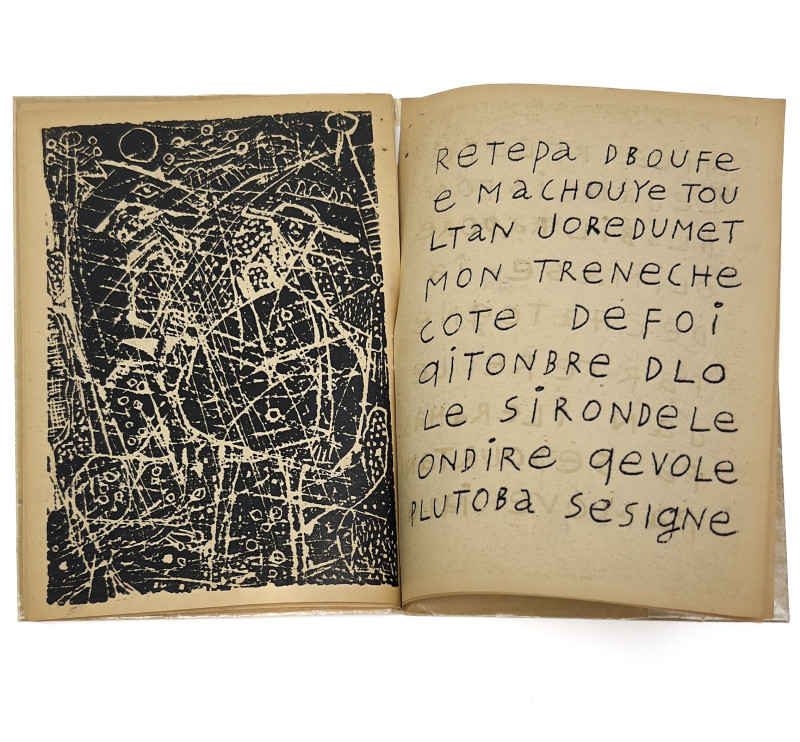 ReTePa DBOUFe
e MaCHOUYe TOU
LTaN JOReDUMeT
MON TReNeCHe
COTe DeFOi
qiTONBRe DLO
Le SiRONDeLe
ONDiRe qeVOLe
PLUTOBa SeSigNe